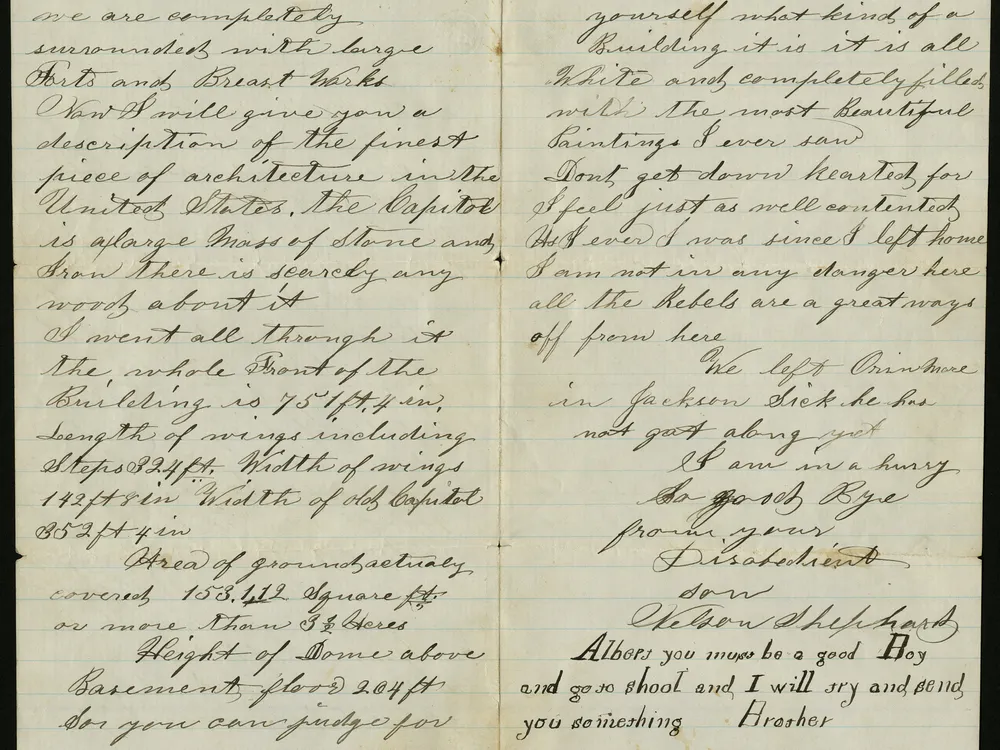 we are completely
surrounded with large
Forts and Breast Works
Now I will give you a
description of the finest
piece of architecture in the
United States. the Capitol
is a large Mass of Stone and
Iron there is scarcely any
wood about it
I went all through it
the whole Front of the
Building is 751 ft. 4 in.
Length of wings including
Steps 324 ft. Width of wings
142 ft 8 in Width of old Capitol
352 ft 4 in
Area of ground actualy
covered 153.112 Square ft.
or more than 3½ Acres
Height of Dome above
Basement floor 264 ft
So you can judge for
yourself what kind of a
Building it is it is all
White and completely filled
with the most Beautiful
Paintings I ever saw
Dont get down hearted for
I feel just as well contented
As I ever I was since I left home
I am not in any danger here
all the Rebels are a great ways
off from here
We left Orin More
in Jackson Sick he has
not got along yet
I am in a hurry
So good Bye
from your
Disobedient
son
Nelson Shephard
Albert you must be a good Boy
and go to shool and I will try and send
you something Brother